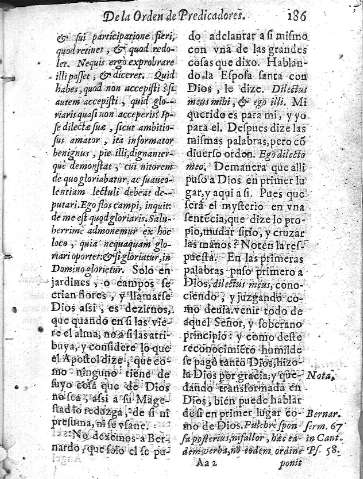 De la Orden de Predicadores. 186
& sui participatione fieri,
quod retinet, & quod redo-
let. Nequis ergo exprobrare
illi posset, & diceret. Quid
habes, quod non accepisti? si
autem accepisti, quid glo-
riaris quasi non acceperis? Ip-
se dilectæ suæ, sicut ambitio-
sus amator, ita informator
benignus, pie illi, dignanter-
que demonstat, cui nitorem
de quo gloriabatur, ac suaveo-
lentiam lectuli debeat de-
putari. Ego flos campi, inquit:
de me est quod gloriaris. Salu-
berrime admonemur ex hoc
loco, quia nequaquam glo-
riari oportet: & si gloriatur, in
Domino glorietur. Solo en
jardines, o campos se
crian flores, y llamarse
Dios assi, es dezirnos,
que quando en si las vie-
se el alma, no a si las atri-
buya, y considere lo que
el Apostol dize, que co-
mo ninguno tiene de
suyo cosa que de Dios
no sea, assi a su Mage-
stad lo reduzga, de si ni
presuma, ni se vfane.
No dezimos a Ber-
nardo, que solo el se pu-
do adelantar a si mismo
con vna de las grandes
cosas que dixo. Hablan-
do la Esposa santa con
Dios, le dize. Dilectus
meus mihi, & ego illi. Mi
querido es para mi, y yo
para el. Despues dize las
mismas palabras, pero cõ
diuerso orden. Ego dilecto
meo. Demanera que alli
puso a Dios en primer lu-
gar, y aqui a si. Pues que
será el mysterio en vna
sentẽcia, que dize lo pro-
pio, mudar sitio, y cruzar
las manos? Noten la res-
puesta. En las primeras
palabras puso primero a
Dios, dilectus meus, cono-
ciendo, y juzgando co-
mo deuia, venir todo de
aquel Señor, y soberano
principio: y como deste
reconocimiento humilde
se pagó tanto Dios, hizo-
la Dios por gracia, y que-
dando transformada en
Dios, bien puede hablar
de si en primer lugar co-
mo de Dios. Pulchrè spon
sa posterius, nifallor, hæc ea
dem verba, no eodem ordine
Aa 2 ponit
Nota.
Bernar.
serm. 67
in Cant.
Ps. 58.